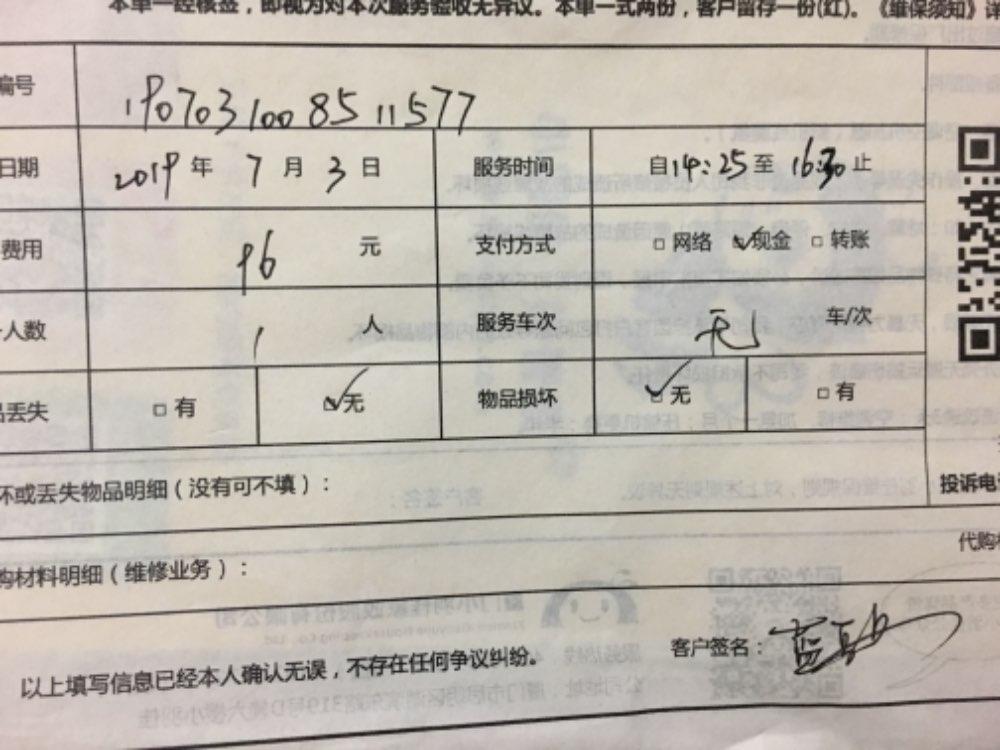 本单一经核签，即视为对本次服务验收无异议。本单一式两份，客户留存一份(红)。《维保须知》详
编号 190703100851577
日期 2019 年 7 月 3 日 服务时间 自14:25至 16:30 止
费用 96 元 支付方式 网络 现金 转账
人数 1 人 服务车次 无 车/次
品丢失 有 无 物品损坏 无 有
坏或丢失物品明细（没有可不填）：
投诉电
代购
购材料明细（维修业务）：
客户签名：
以上填写信息已经本人确认无误，不存在任何争议纠纷。